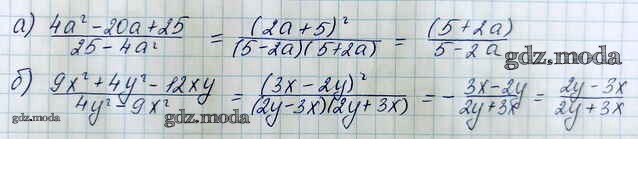 а) (4a² - 20a + 25)/(25 - 4a²) = (2a + 5)²/((5 - 2a)(5 + 2a)) = (5 + 2a)/(5 - 2a)
gdz.moda
б) (9x² + 4y² - 12xy)/(4y² - 9x²) = (3x - 2y)²/((2y - 3x)(2y + 3x)) = - (3x - 2y)/(2y + 3x) = (2y - 3x)/(2y + 3x)
gdz.moda gdz.moda gdz.moda